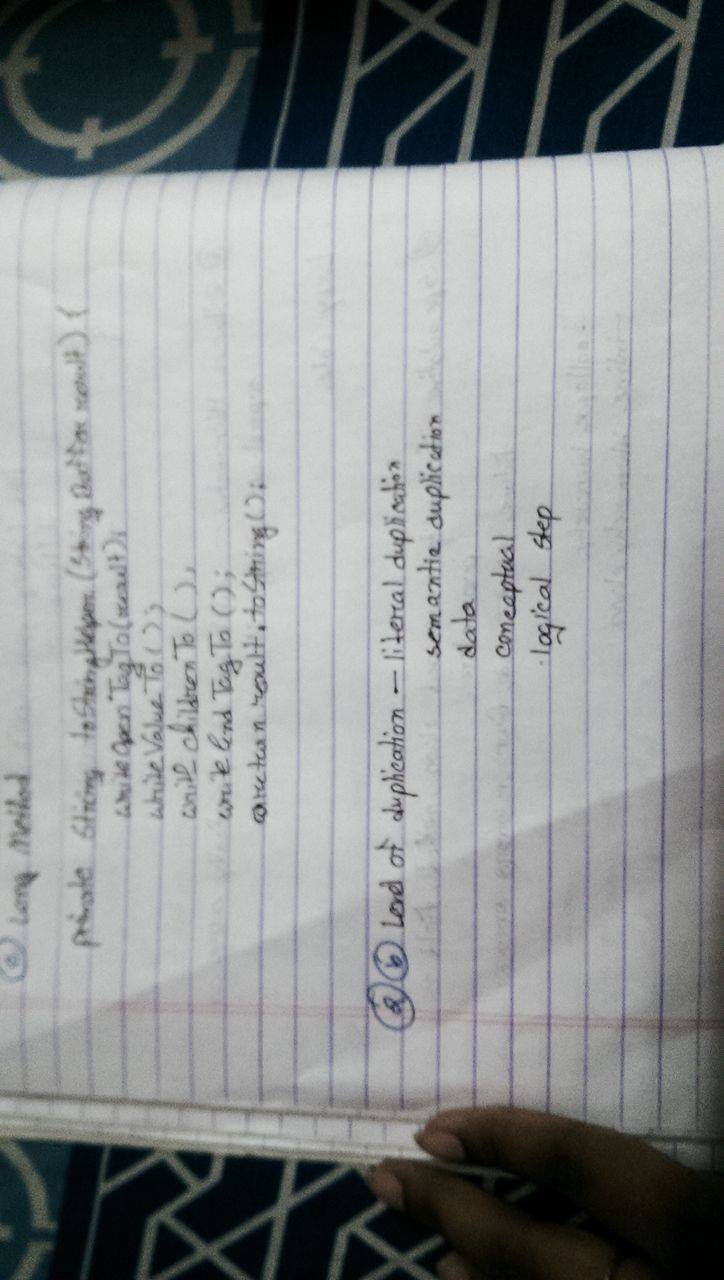 a Long Method
private String toStringHelper (String Buffer result) {
write Open Tag To (result);
write Value To ( );
write children To ( ),
write End Tag To ( );
return result. toString ( );
a b Level of duplication – literal duplication
semantic duplication
data
conceptual
logical step